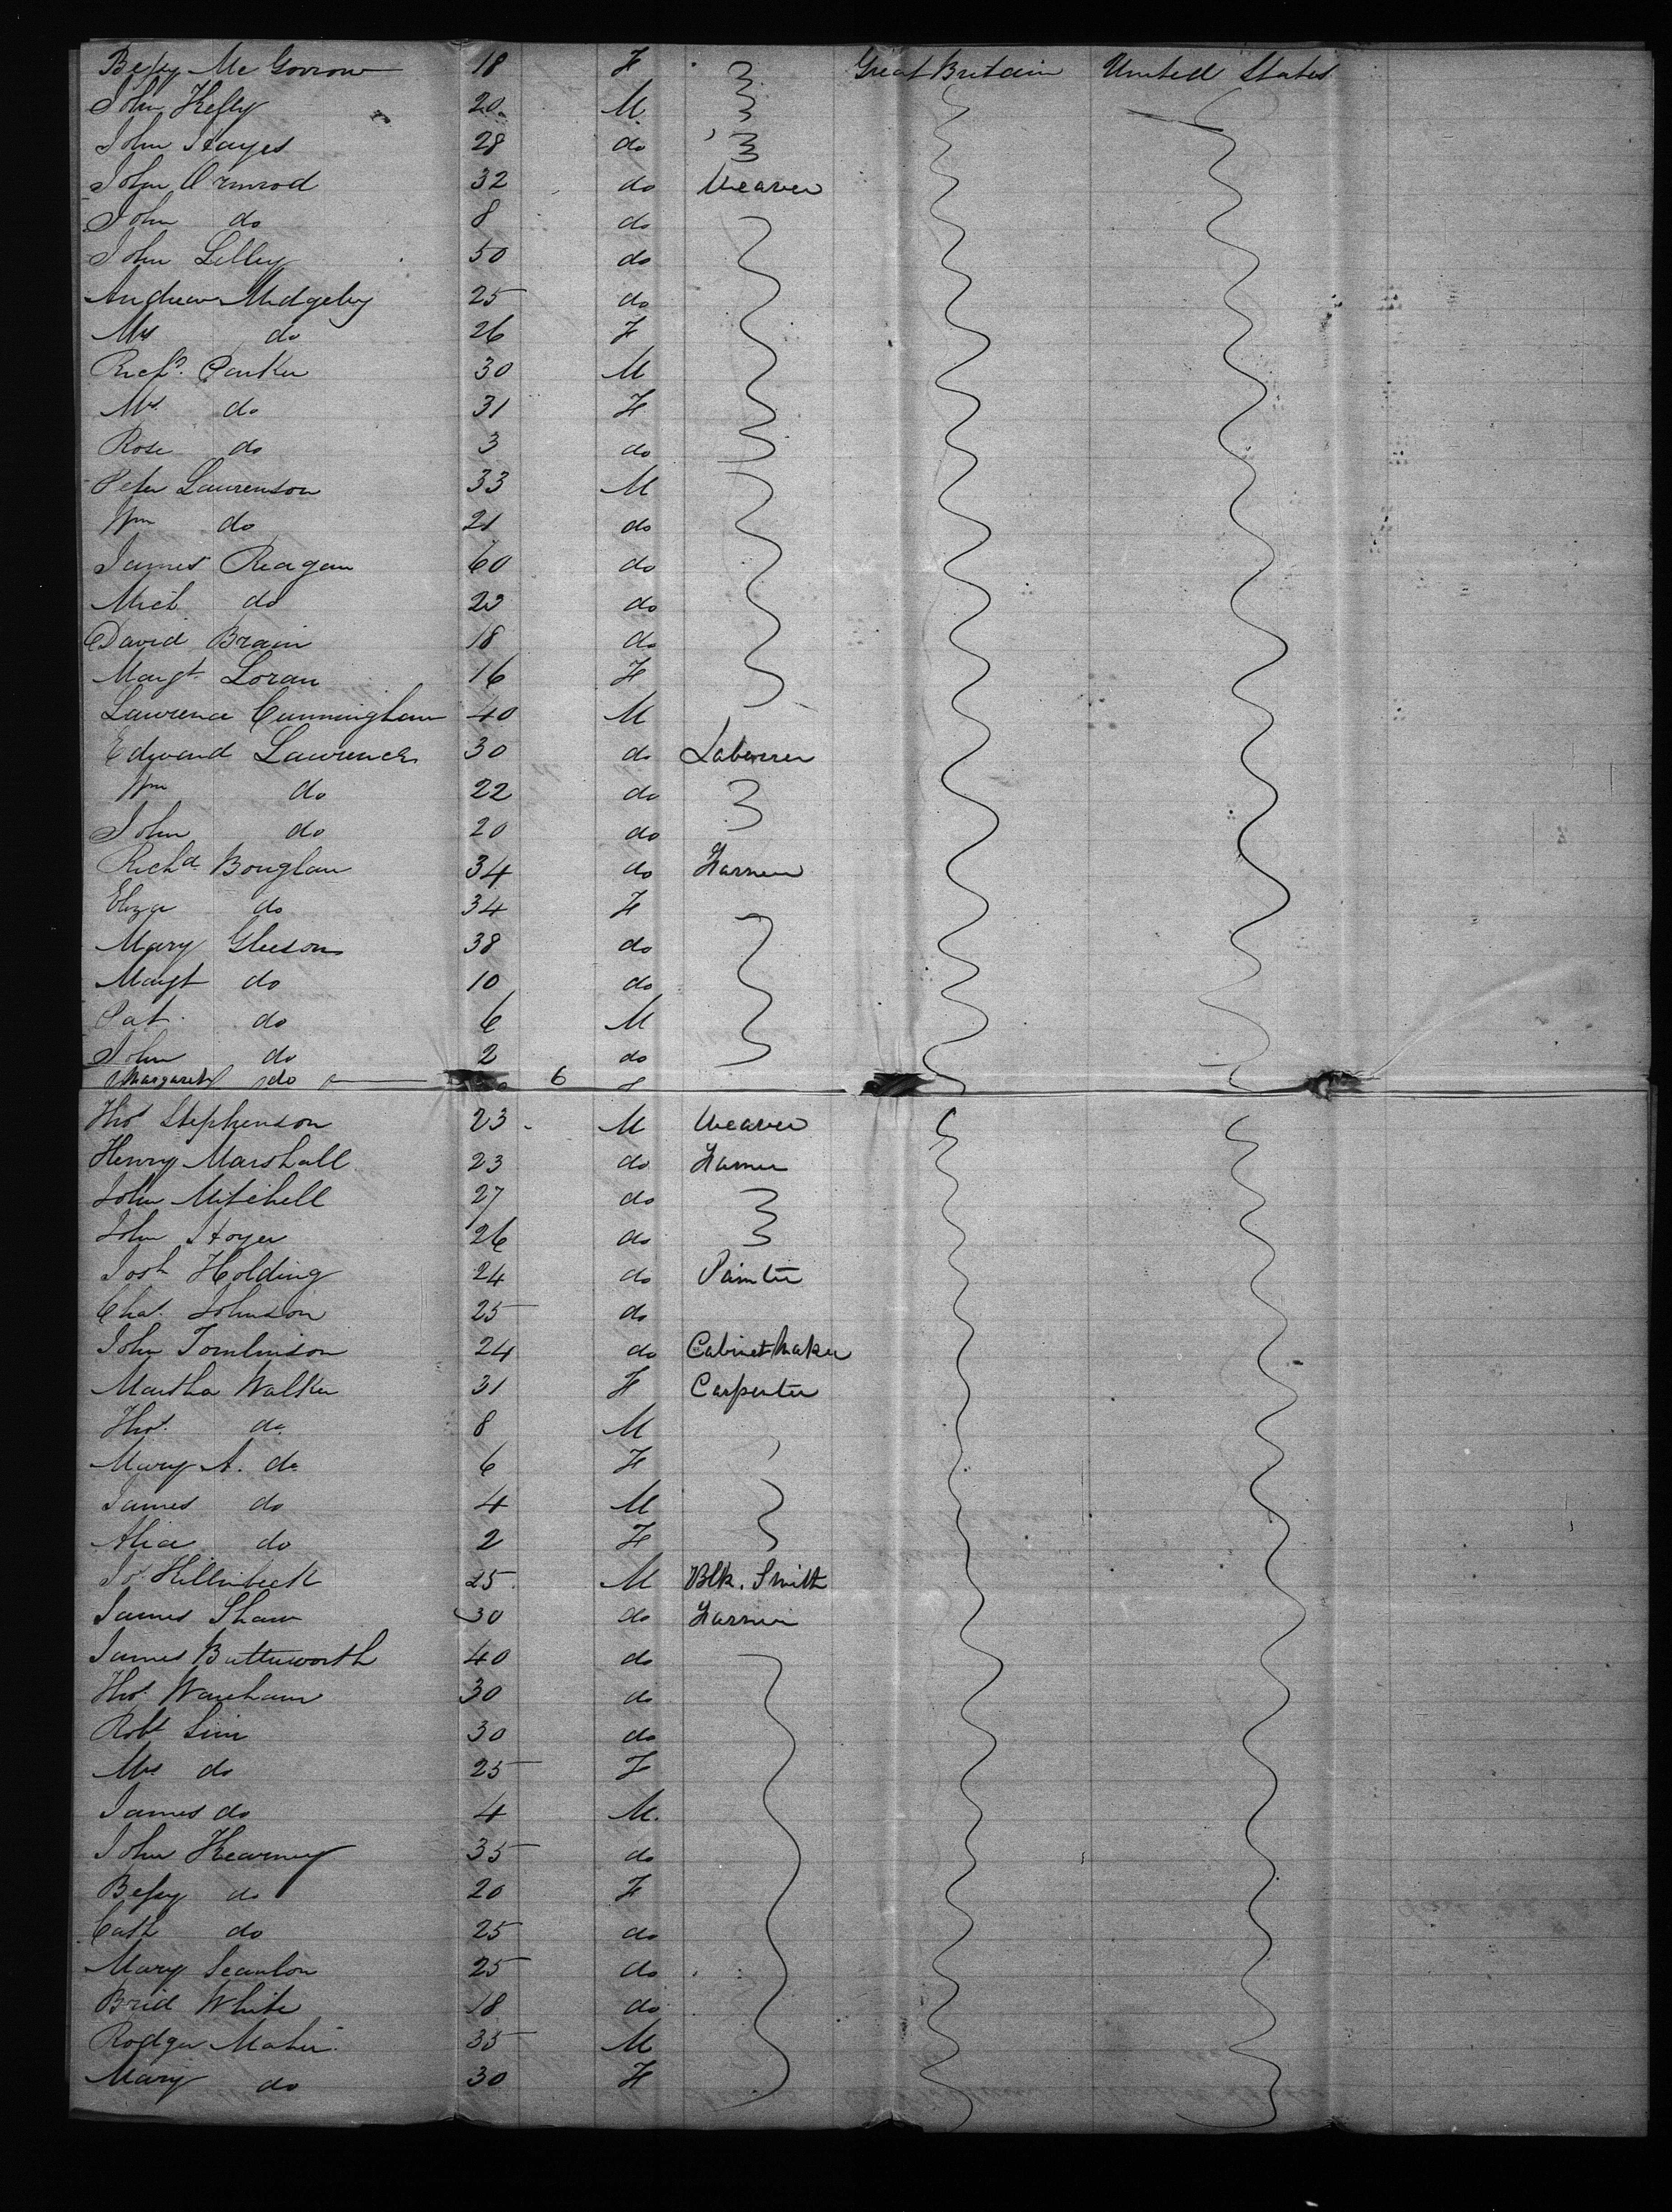 Bessy Mc Govrow 18 F Great Britain United States
John Kelly 20 M
John Hayes 28 do
John Ormrod 32 do Weaver
John do 8 do
John Lilley 50 do
Andrew Midgeley 25 do
Mrs do 26 F
Parker 30 M
Mrs do 31 F
Rose do 3 do
Peter Laurenson 33 M
Wm do 21 do
James Reagan 60 do
Mich do do
David Brain 18 do
Margt Loran 16 F
Lawrence Cunningham 40 M
Edward Lawrence 30 do Laborer
Wm do 22 do
John do 20 do
Richd Bouglan 34 do Farmer
Eliza do 34 F
Mary Gleeson 38 do
Margt do 10 do
Pat do 6 M
John do 2 do
Margaret do 6
Thos Stephenson 23 M Weaver
Henry Marshall 23 do Farmer
John Mitchell 27 do
John Hoyer 26 do
Josh Holding 24 do Painter
Chas. Johnson 25 do
John Tomlinson 24 do Cabinet Maker
Martha Walker 31 F Carpenter
Thos. do 8 M
Mary A. do 6 F
James do 4 M
Alice do 2 F
Jos. Hillnbeck 25 M Blk. Smith
James Shaw 30 do Farmer
James Butterworth 40 do
Thos. Wareham 30 do
Robt Sim 30 do
Mrs do 25 F
James do 4 M.
John Kearney 35 do
Bessy do 20 F
Cath do 25 do
Mary Scanlon 25 do
Brid White 18 do
Rodger Maher 35 M
Mary do 30 F